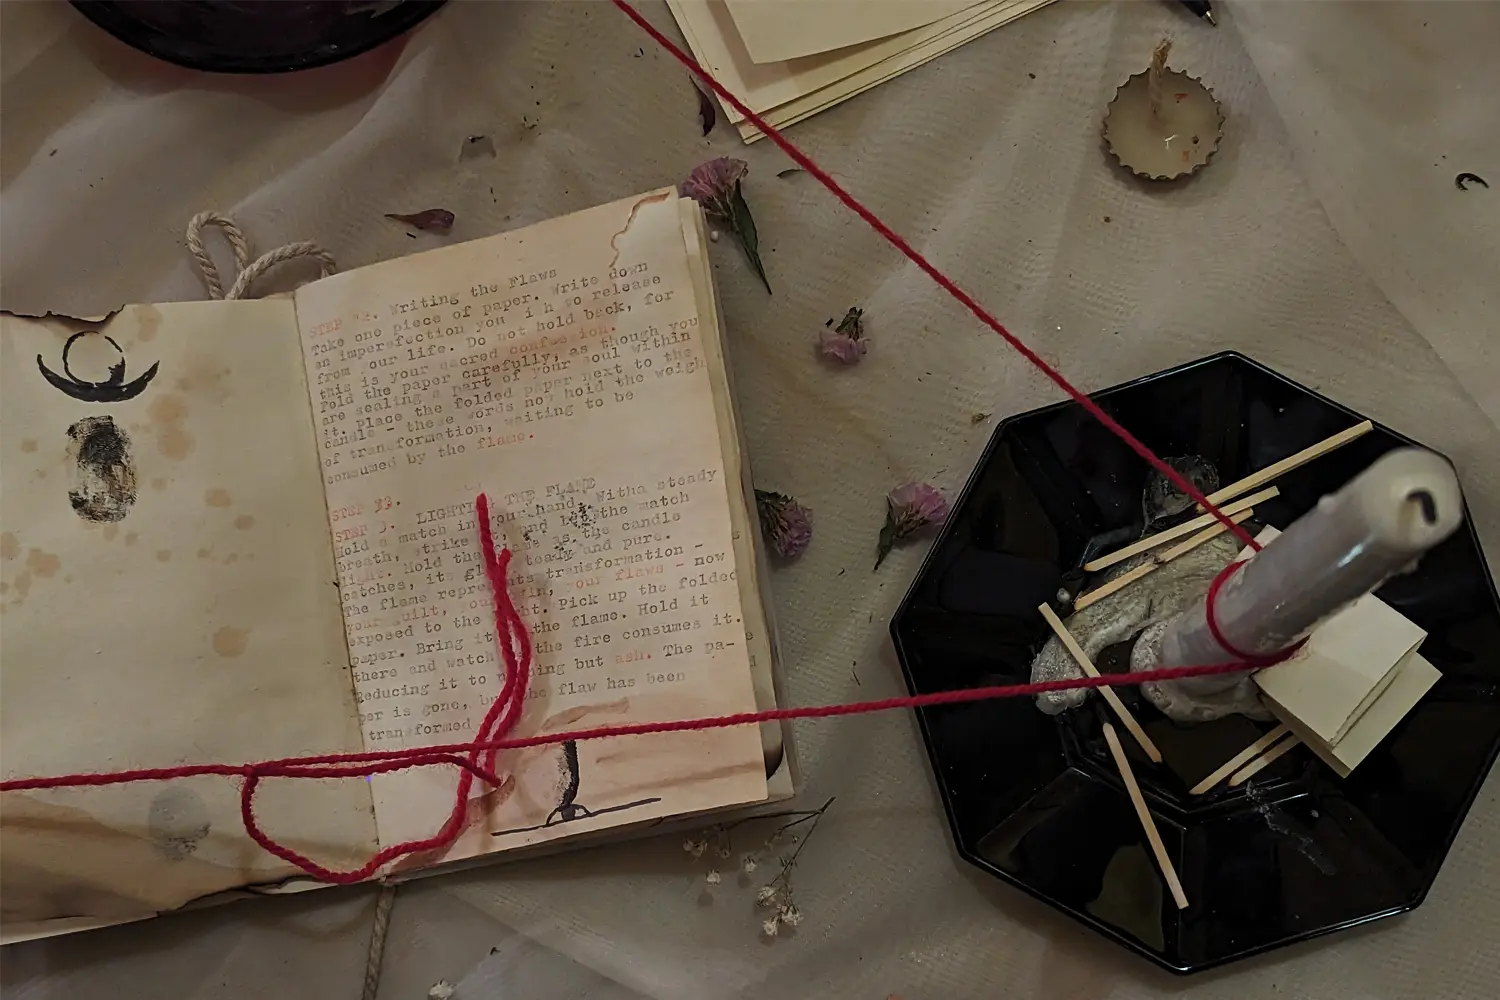 STEP #2. Writing the Flaws
Take one piece of paper. Write down
an imperfection you i h to release
from our life. Do not hold back, for
this is your sacred confession.
Fold the paper carefully, as though you
are sealing a part of your soul within
it. Place the folded paper next to the
candle - these words now hold the weigh
of transformation, waiting to be
consumed by the flame.
STEP #3.
STEP 3. LIGHTI THE FLAME
Hold a match in your hand. Witha steady
breath, strike it, and let the match
light. Hold the flame as the candle
catches, its gl steady and pure.
The flame represents transformation -
your guilt, your in, your flaws - now
exposed to the ht. Pick up the folded
paper. Bring it the flame. Hold it
there and watch the fire consumes it.
Reducing it to n hing but ash. The pa-
per is gone, bu the flaw has been
transformed